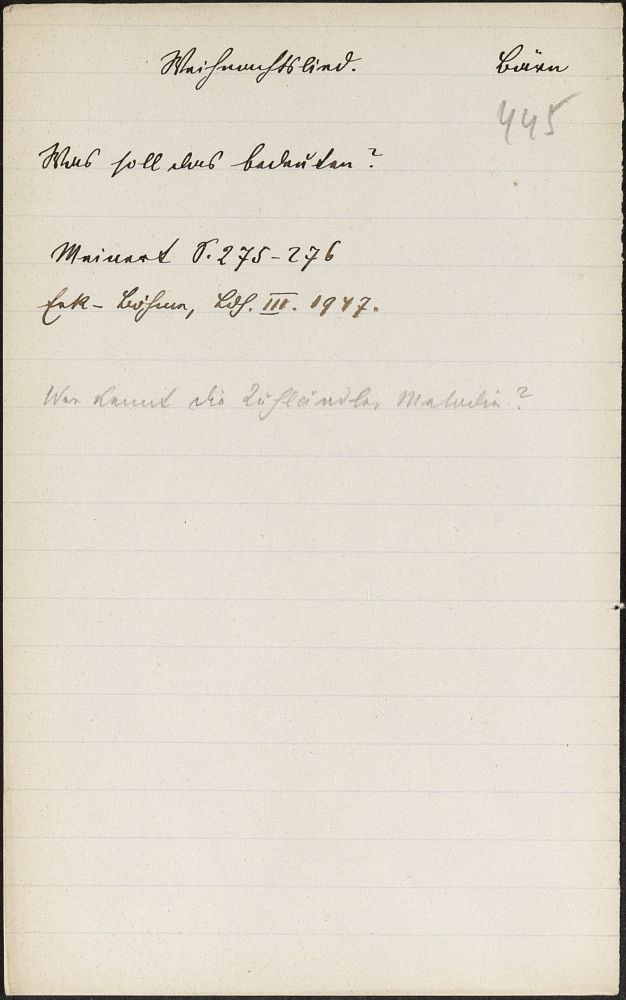 Weihnachtslied. Bärn
445
Was soll das bedeuten?
Meinert S. 275-276
Erk-Böhme, Ldh. III. 1947.
Wer kennt die Kuhländler Melodie?